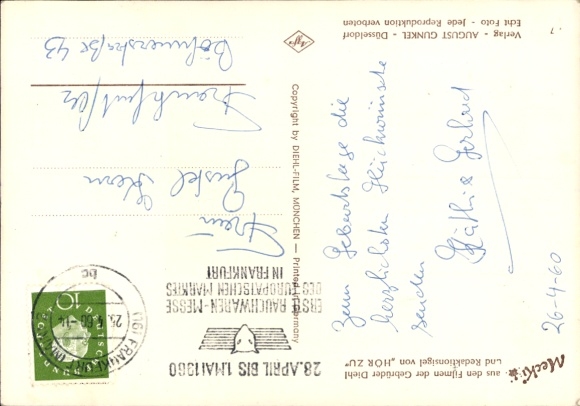 Mecki
aus den Filmen der Gebrüder Diehl
und Redaktionsigel von „HÖR ZU"
26-4-60
Zum Geburtstage die
herzlichsten Glückwünsche
senden
Käthi & Gerhard
Verlag - AUGUST GUNKEL - Düsseldorf
Echt Foto - Jede Reproduktion verboten
Agfa
Copyright by DIEHL-FILM, MÜNCHEN — Printed in Germany
28. APRIL BIS 1. MAI 1960
ERSTE RAUCHWAREN-MESSE
DES EUROPÄISCHEN MARKTES
IN FRANKFURT
(16) FRANKFURT (MAIN)
26.4.60-14
bc
10
DEUTSCHE BUNDESPOST
Frau
Kern
Frankfurt/M
43